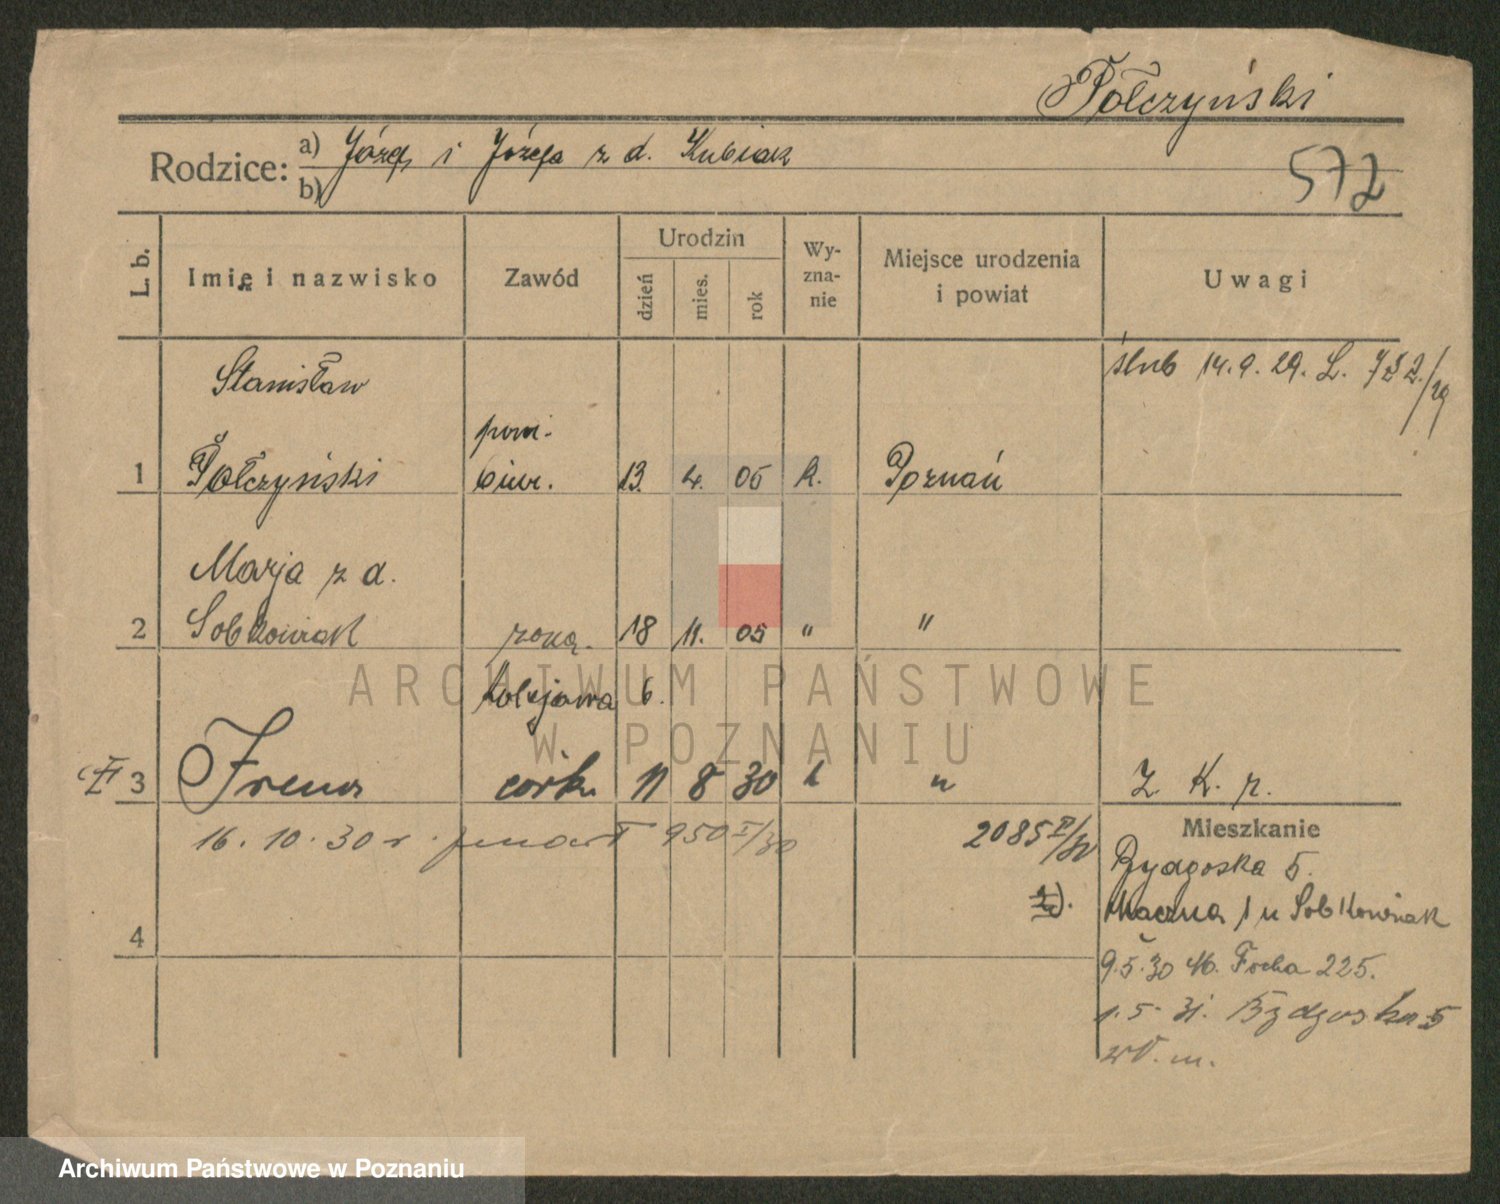 Połczyński
572
Rodzice: a) Józef i Józefa z d. Kubiak
b)
L. b.
Imię i nazwisko
Zawód
Urodzin
dzień
mies.
rok
Wy-
zna-
nie
Miejsce urodzenia
i powiat
Uwagi
Stanisław
ślub 14.9.29. L. 732/29
pom.
1 Połczyński biur. 13. 4. 05 k. Poznań
Marja z d.
2 Sobkowiak żona. 18 11. 05 " "
kolejowa 6.
3 Irena córka 11 8 30 k " Z K. p.
16.10.30 r. 950 I/30 2085 II/30
Mieszkanie
Bydgoska 5.
2).
Mączna 1 u Sobkowiak
4
9.5.30 M. Focha 225.
1.5.31. Bydgoska 5
w. m.
ARCHIWUM PAŃSTWOWE
W POZNANIU
Archiwum Państwowe w Poznaniu